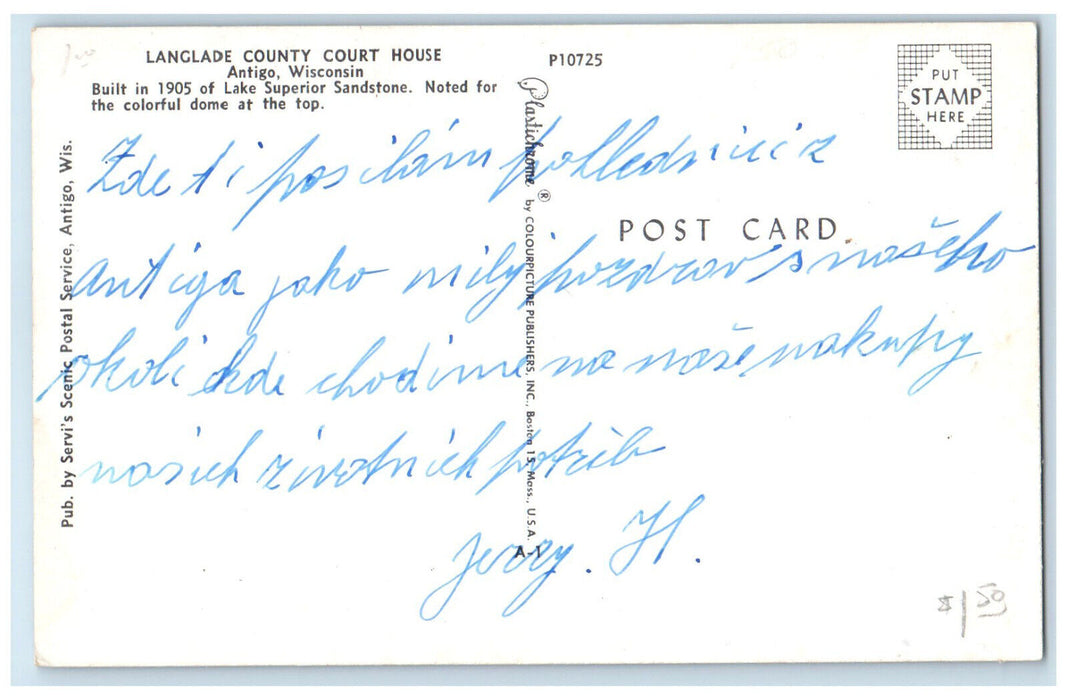 LANGLADE COUNTY COURT HOUSE
Antigo, Wisconsin
Built in 1905 of Lake Superior Sandstone. Noted for
the colorful dome at the top.
P10725
PUT
STAMP
HERE
Pub. by Servi's Scenic Postal Service, Antigo, Wis.
Plastichrome ® by COLOURPICTURE PUBLISHERS, INC., Boston 15, Mass., U.S.A.
A-1
POST CARD
Zde ti posilám pohlednici z
Antiga jako milý pozdrav s našeho
okoli kde chodime na naše nakupy
nasich zivotnich potřib
Jerry. H.
$1.50